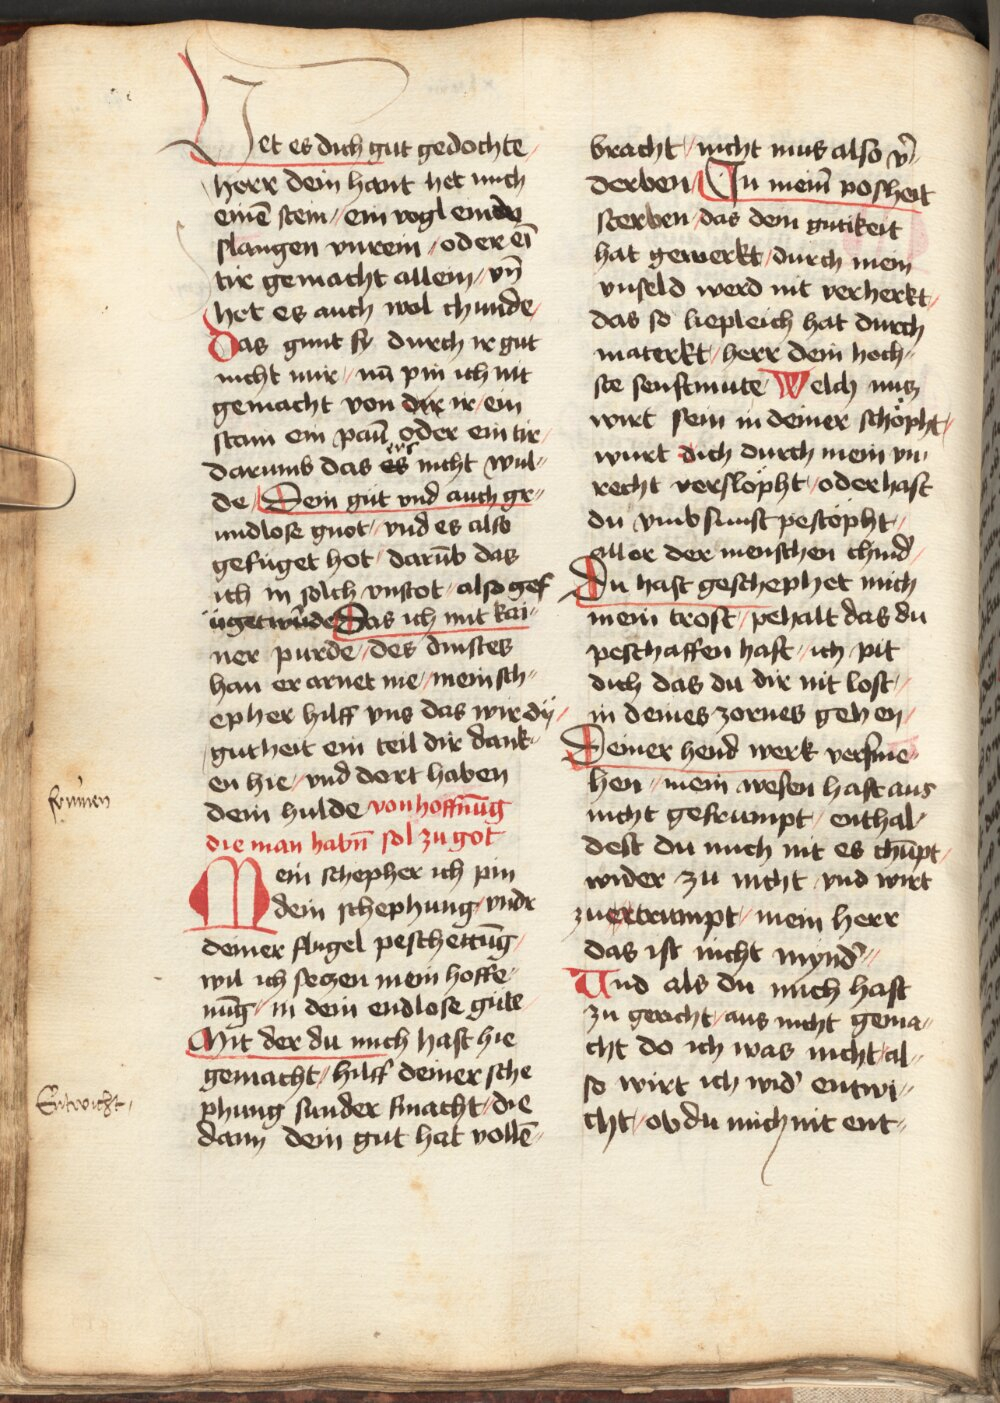 Het es dich gut gedochte /
herr dein hant het mich
einē stein // ein vogl ein
slangen vnrein // oder eī
tir gemacht allein / vn̄
het es auch wol chunde /
Das gunt sy durch ir gut
nicht mir / nū pin ich nit
gemacht von dir ir / ein
stain ein paū oder ein tir /
darumb das es nicht wul//
de / Dein güt vnd auch gr//
undlose gnot / vnd es also
gefüget hot / darūb das
ich in sölch vnstot / also gef
üget würde Das ich mit kai//
ner purde / des dinstes
han er arnet nie / mein sch//
epher hilff vns das wir dÿ /
gutheit ein teil dir dank//
en hie / vnd dort haben
dein hulde von hoffnūg
die man habn̄ sol zu got
Mein schepher ich pin
dein schephung / vndr
deiner flugel peschettūg /
wil ich seczen mein hoffe//
nūg / in dein endlose güte /
Mit der du mich hast hie
gemacht / hilff deiner sche
phung sunder smacht / die
dann dein gut hat vollē//
bracht / nicht mus also v̄//
derben / In meinē posheit
sterben / das dein gutikeit
hat gewerkt / durch mein
vnseld werd nit verherkt /
das so liepleich hat durch
materkt / herr dein hoch//
ste senftmute / Welch nutz
wirt sein in deiner schöpht /
wurt dich durch mein vn//
recht verslöpht / oder hast
du vmb sunst pestöpht /
aller der menschen chind /
Du hast geschephet mich
mein trost / pehalt das du
peschaffen hast / ich pit
dich das du dir nit lost /
in deines zornes gehen /
Deiner hend werk versme//
hen // mein wesen hast aus
nicht gefrumpt / enthal//
dest du mich nit es chūpt /
wider zu nicht vnd wirt
zuertrumpt / mein herr
das ist nicht mynd' //
Und als du mich hast
zu geracht / aus nicht gema//
cht do ich was nicht / al//
so wirt ich wid' entwi//
cht / ob du mich nit ent//
Entwicht /